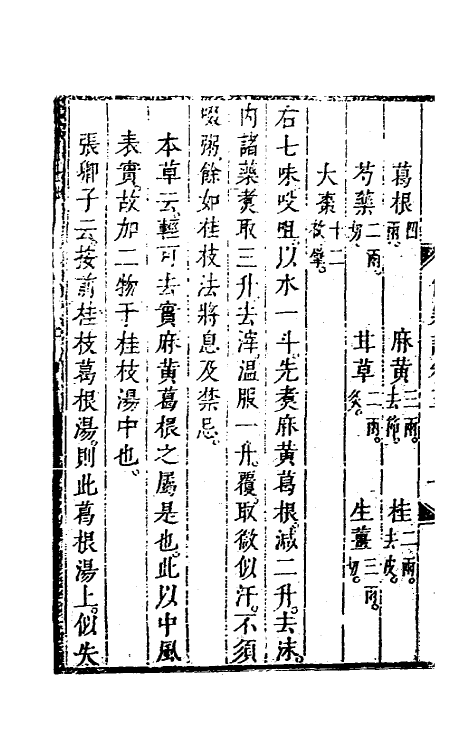 葛根四兩 麻黃三兩去節 桂二兩去皮
芍藥二兩切 甘草二兩炙 生薑三兩切
大棗十二枚擘
右七味㕮咀以水一斗先煑麻黃葛根減二升去沫
内諸藥煑取三升去滓溫服一升覆取微似汗不須
啜粥餘如桂枝法將息及禁忌
本草云輕可去實麻黃葛根之屬是也此以中風
表實故加二物于桂枝湯中也
張卿子云按前桂枝葛根湯則此葛根湯上似失